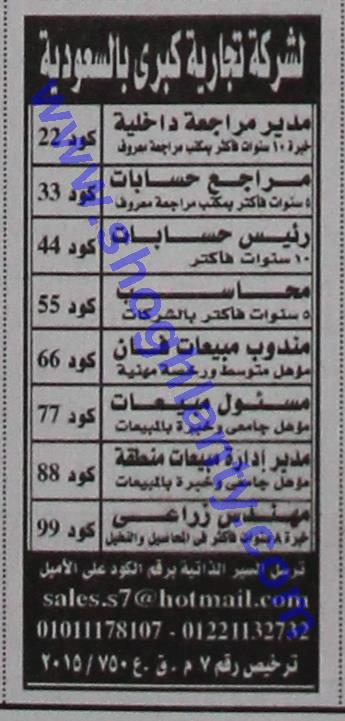 لشركة تجارية كبرى بالسعودية
مدير مراجعة داخلية
خبرة ١٠ سنوات فأكثر بمكتب مراجعة معروف
كود 22
مراجع حسابات
٥ سنوات فأكثر بمكتب مراجعة معروف
كود 33
رئيس حسابات
١٠ سنوات فأكثر
كود 44
محاسب
٥ سنوات فأكثر بالشركات
كود 55
مندوب مبيعات فان
مؤهل متوسط ورخصة مهنية
كود 66
مسئول مبيعات
مؤهل جامعى وخبرة بالمبيعات
كود 77
مدير إدارة مبيعات منطقة
مؤهل جامعى وخبرة بالمبيعات
كود 88
مهندس زراعى
خبرة ٨ سنوات فأكثر فى المحاصيل والنخيل
كود 99
ترسل السير الذاتية برقم الكود على الأميل
sales.s7@hotmail.com
01011178107 - 01221132732
ترخيص رقم ٧ م . ق . ع ٧٥٠ / ٢٠١٥
www.shoghlanty.com